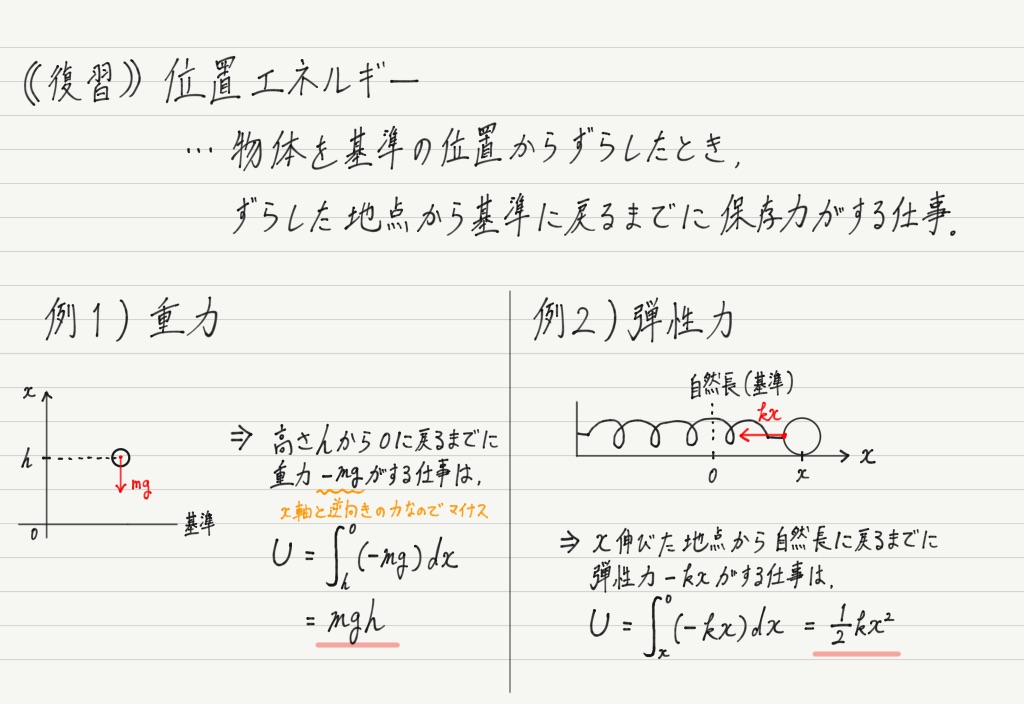 《復習》位置エネルギー
… 物体を基準の位置からずらしたとき,
ずらした地点から基準に戻るまでに保存力がする仕事。
例1) 重力
x
h
mg
0
基準
⇒ 高さhから0に戻るまでに
重力 -mgがする仕事は,
x軸と逆向きの力なのでマイナス
U = ∫_h^0 (-mg) dx
= mgh
例2) 弾性力
自然長(基準)
kx
x
0
x
⇒ x伸びた地点から自然長に戻るまでに
弾性力 -kxがする仕事は,
U = ∫_x^0 (-kx) dx = 1/2 kx²